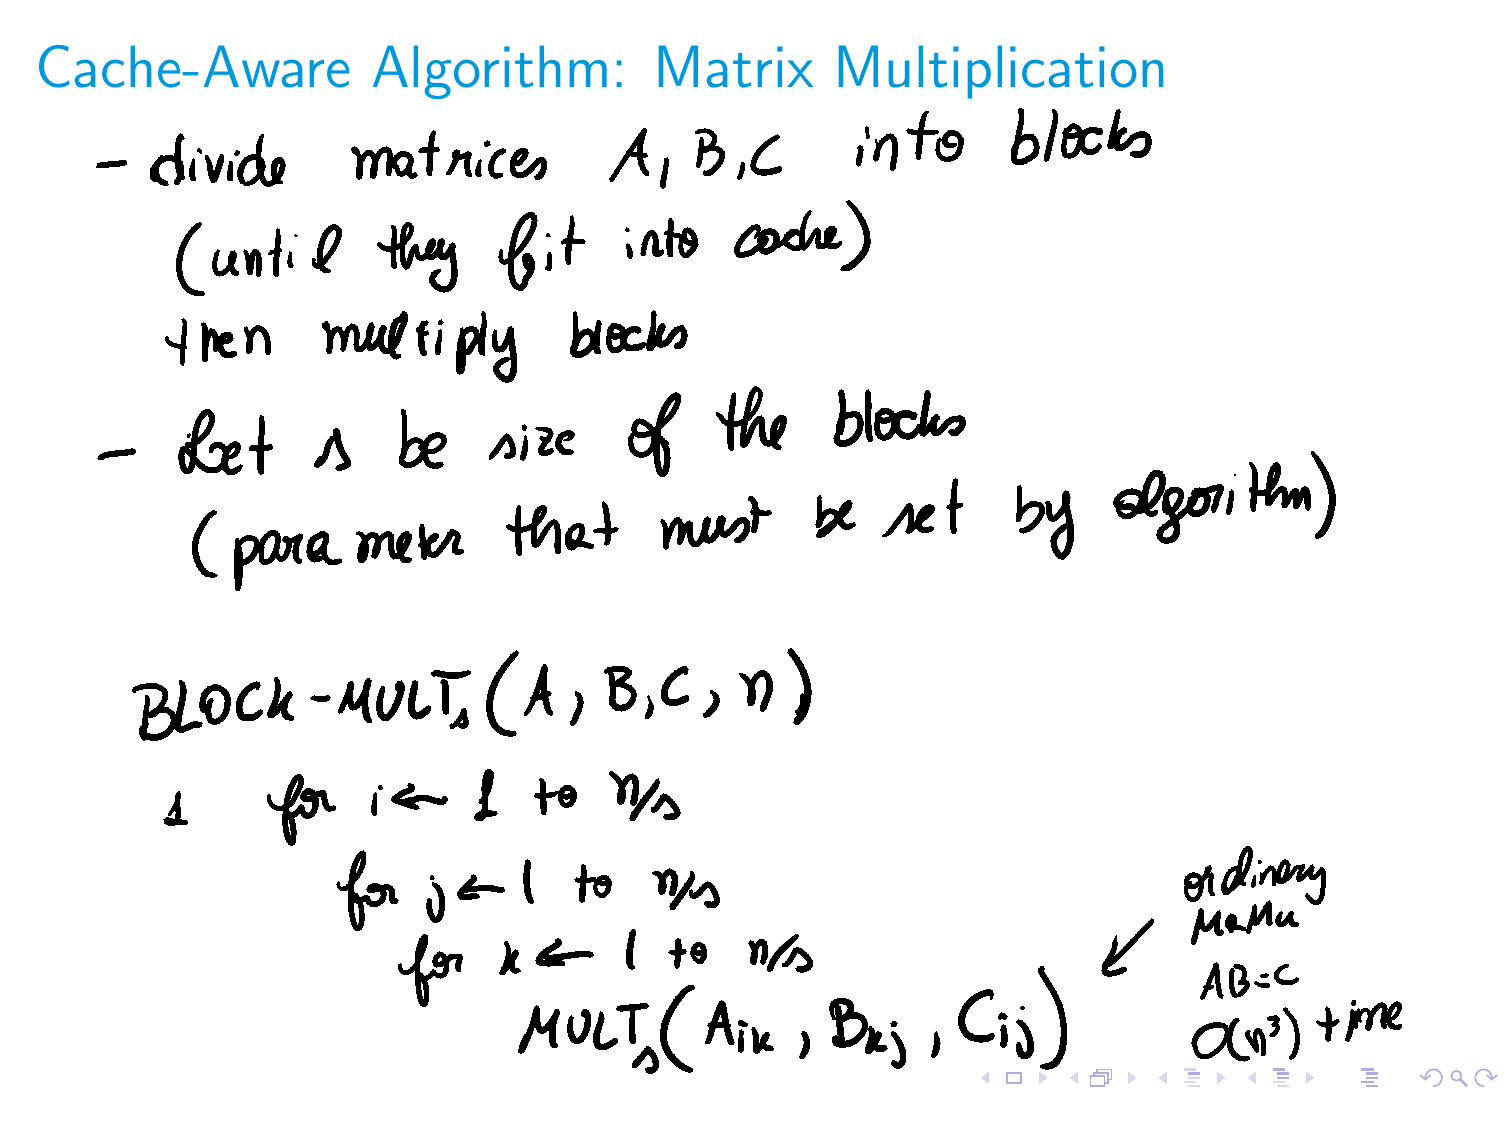 Cache-Aware Algorithm: Matrix Multiplication
- divide matrices A, B, C into blocks
(until they fit into cache)
then multiply blocks
- Let s be size of the blocks
(parameter that must be set by algorithm)
BLOCK-MULTₛ(A, B, C, n)
1 for i ← 1 to n/s
for j ← 1 to n/s
for k ← 1 to n/s
MULTₛ(Aik, Bkj, Cij)
ordinary
MaMu
AB=C
O(n³) time